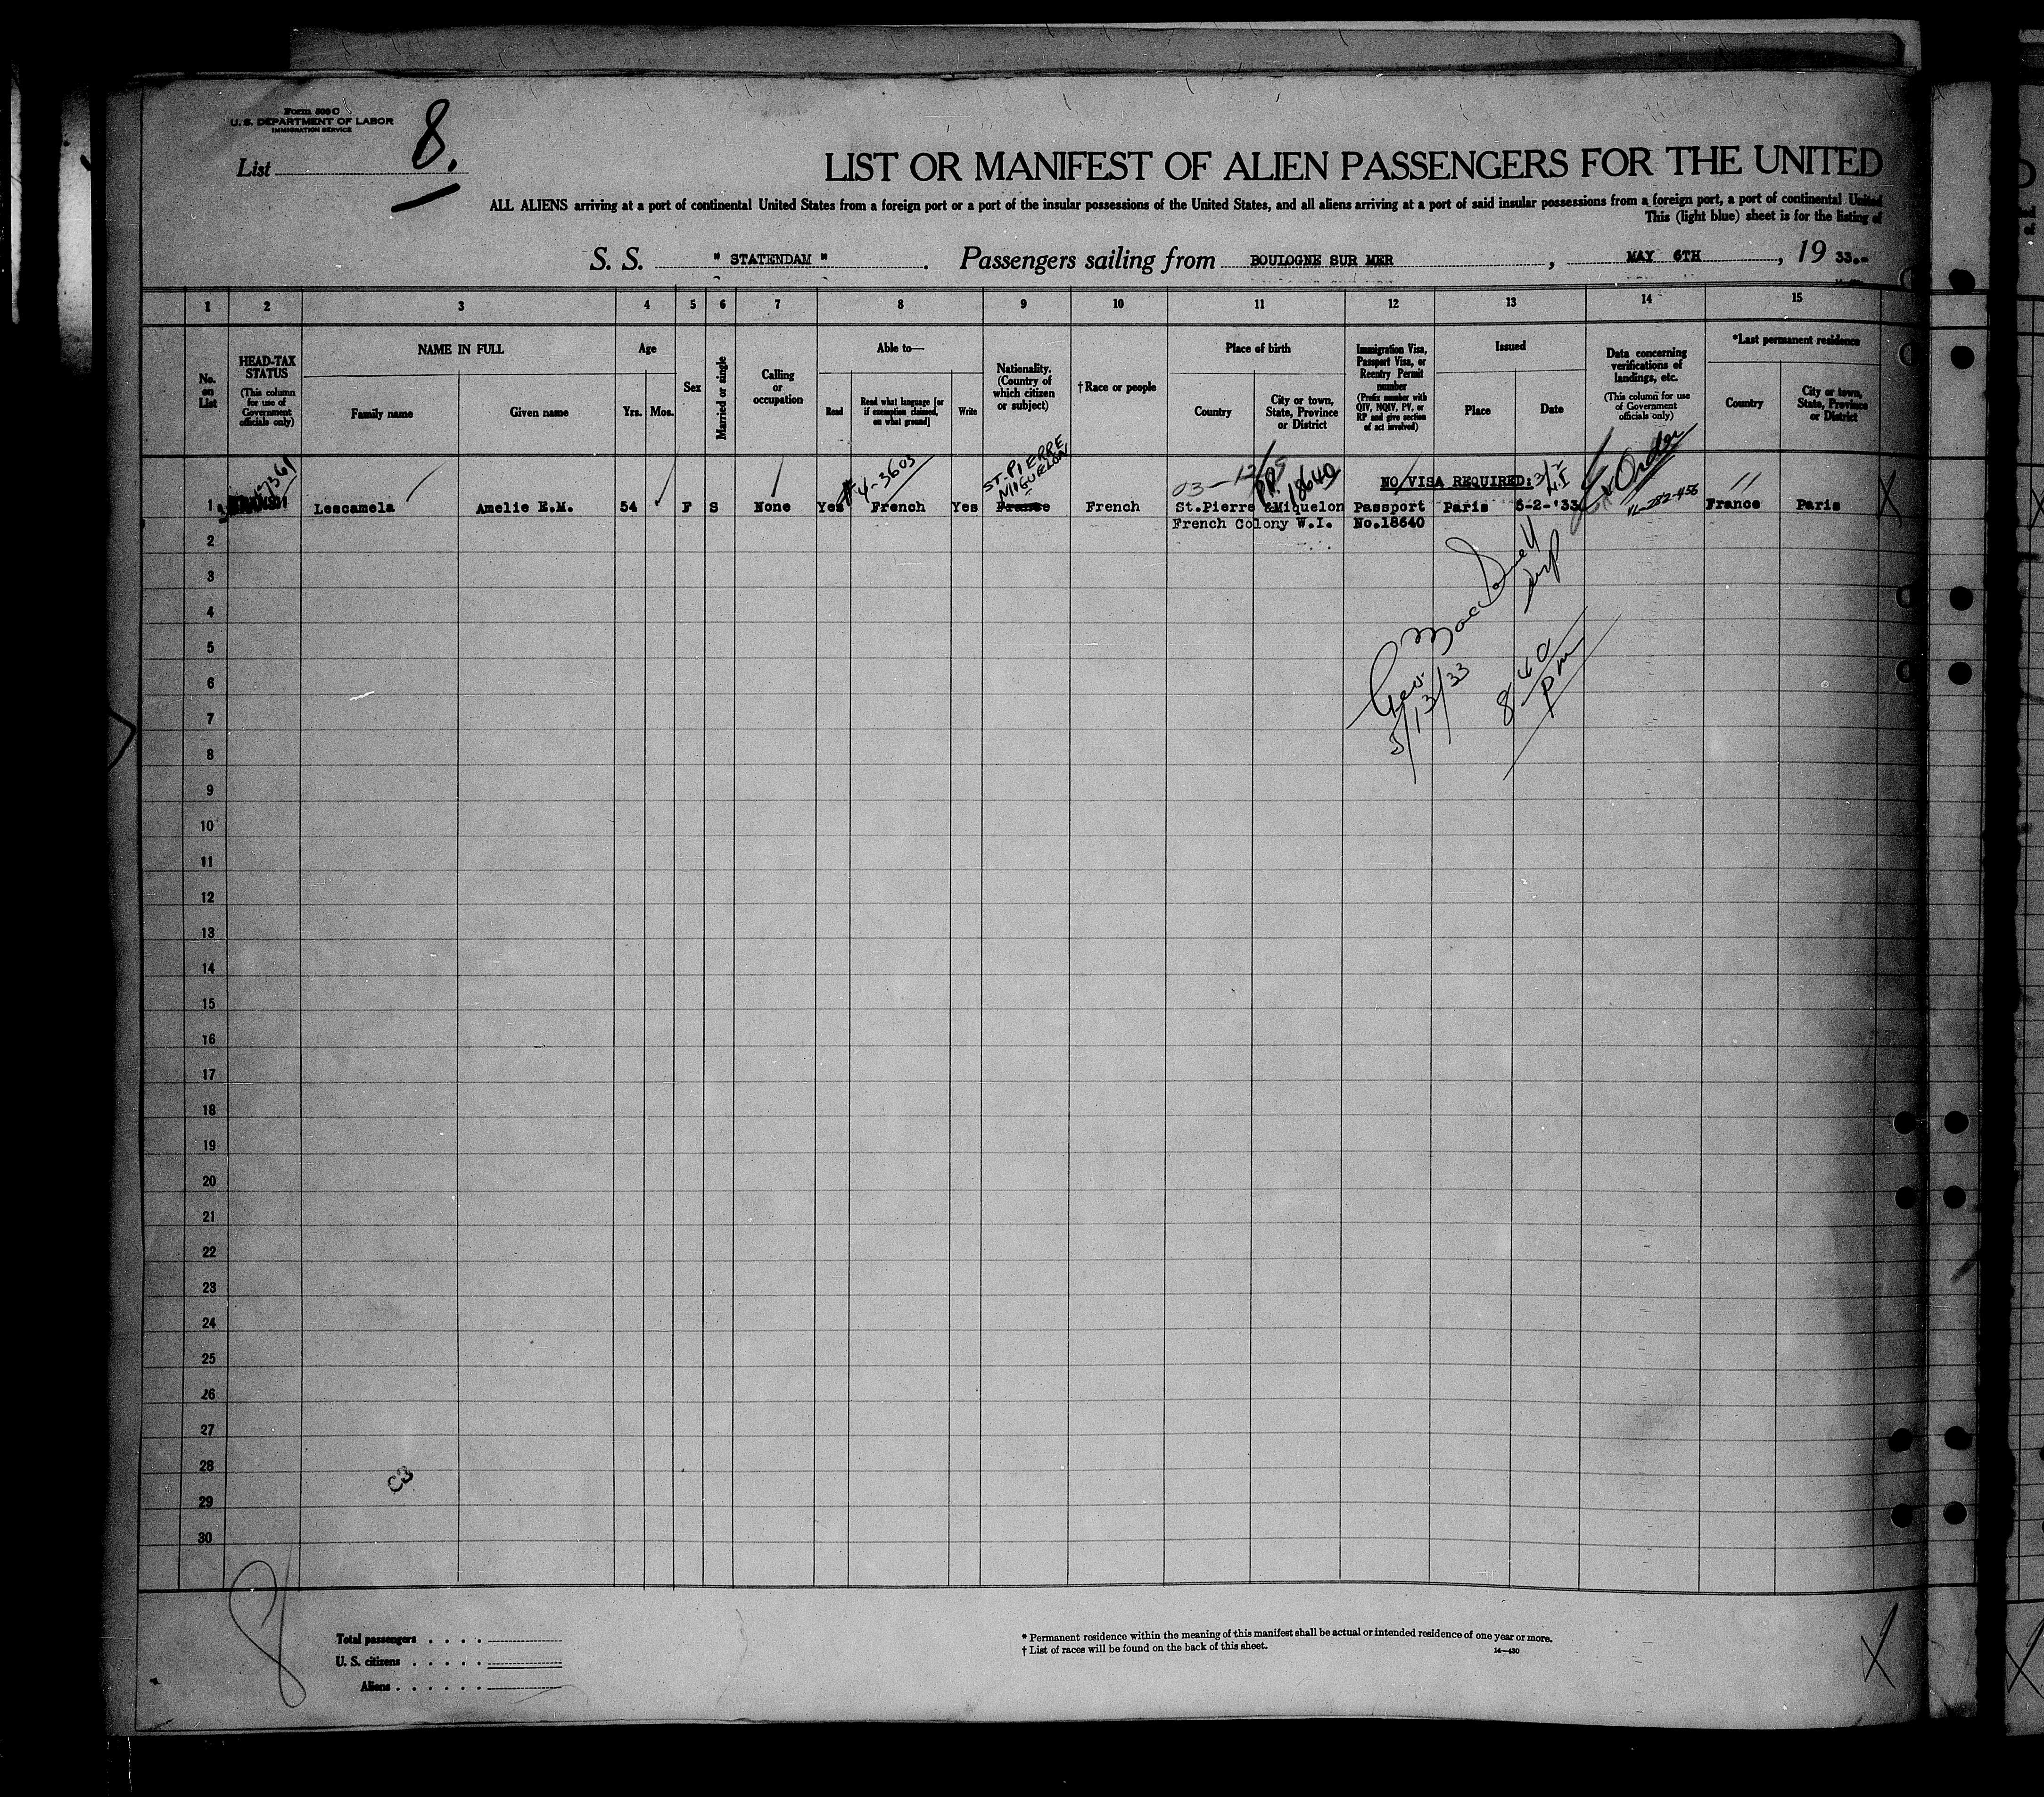 Form 500 C
U. S. DEPARTMENT OF LABOR
IMMIGRATION SERVICE
List 8.
LIST OR MANIFEST OF ALIEN PASSENGERS FOR THE UNITED
ALL ALIENS arriving at a port of continental United States from a foreign port or a port of the insular possessions of the United States, and all aliens arriving at a port of said insular possessions from a foreign port, a port of continental United
This (light blue) sheet is for the listing of
S. S. " STATENDAM " . Passengers sailing from BOULOGNE SUR MER , MAY 6TH , 19 33.-
1 2 3 4 5 6 7 8 9 10 11 12 13 14 15
No. on List
HEAD-TAX STATUS
(This column for use of Government officials only)
NAME IN FULL
Family name
Given name
Age
Yrs. Mos.
Sex
Married or single
Calling or occupation
Able to—
Read
Read what language [or if exemption claimed, on what ground]
Write
Nationality. (Country of which citizen or subject)
† Race or people
Place of birth
Country
City or town, State, Province or District
Immigration Visa, Passport Visa, or Reentry Permit number
(Prefix number with QIV, NQIV, PV, or RP and give section of act involved)
Issued
Place
Date
Data concerning verifications of landings, etc.
(This column for use of Government officials only)
*Last permanent residence
Country
City or town, State, Province or District
#4-3603
ST-PIERRE
MIQUELON
03-
PP. 18640
NO VISA REQUIRED:
Ex Order
1 Lescamela Amelie E.M. 54 F S None Yes French Yes France French St.Pierre &Miquelon Passport Paris 5-2-'33 France Paris
French Colony W.I. No.18640
2
3
4
5
6
7
8
9
10
11
12
13
14
15
16
17
18
19
20
21
22
23
24
25
26
27
28
29
30
Geo. MacDonell
Insp
5/13/33
8 40 pm
C3
Total passengers . . . .
U. S. citizens . . . . .
Aliens . . . . . .
* Permanent residence within the meaning of this manifest shall be actual or intended residence of one year or more.
† List of races will be found on the back of this sheet.
14—430